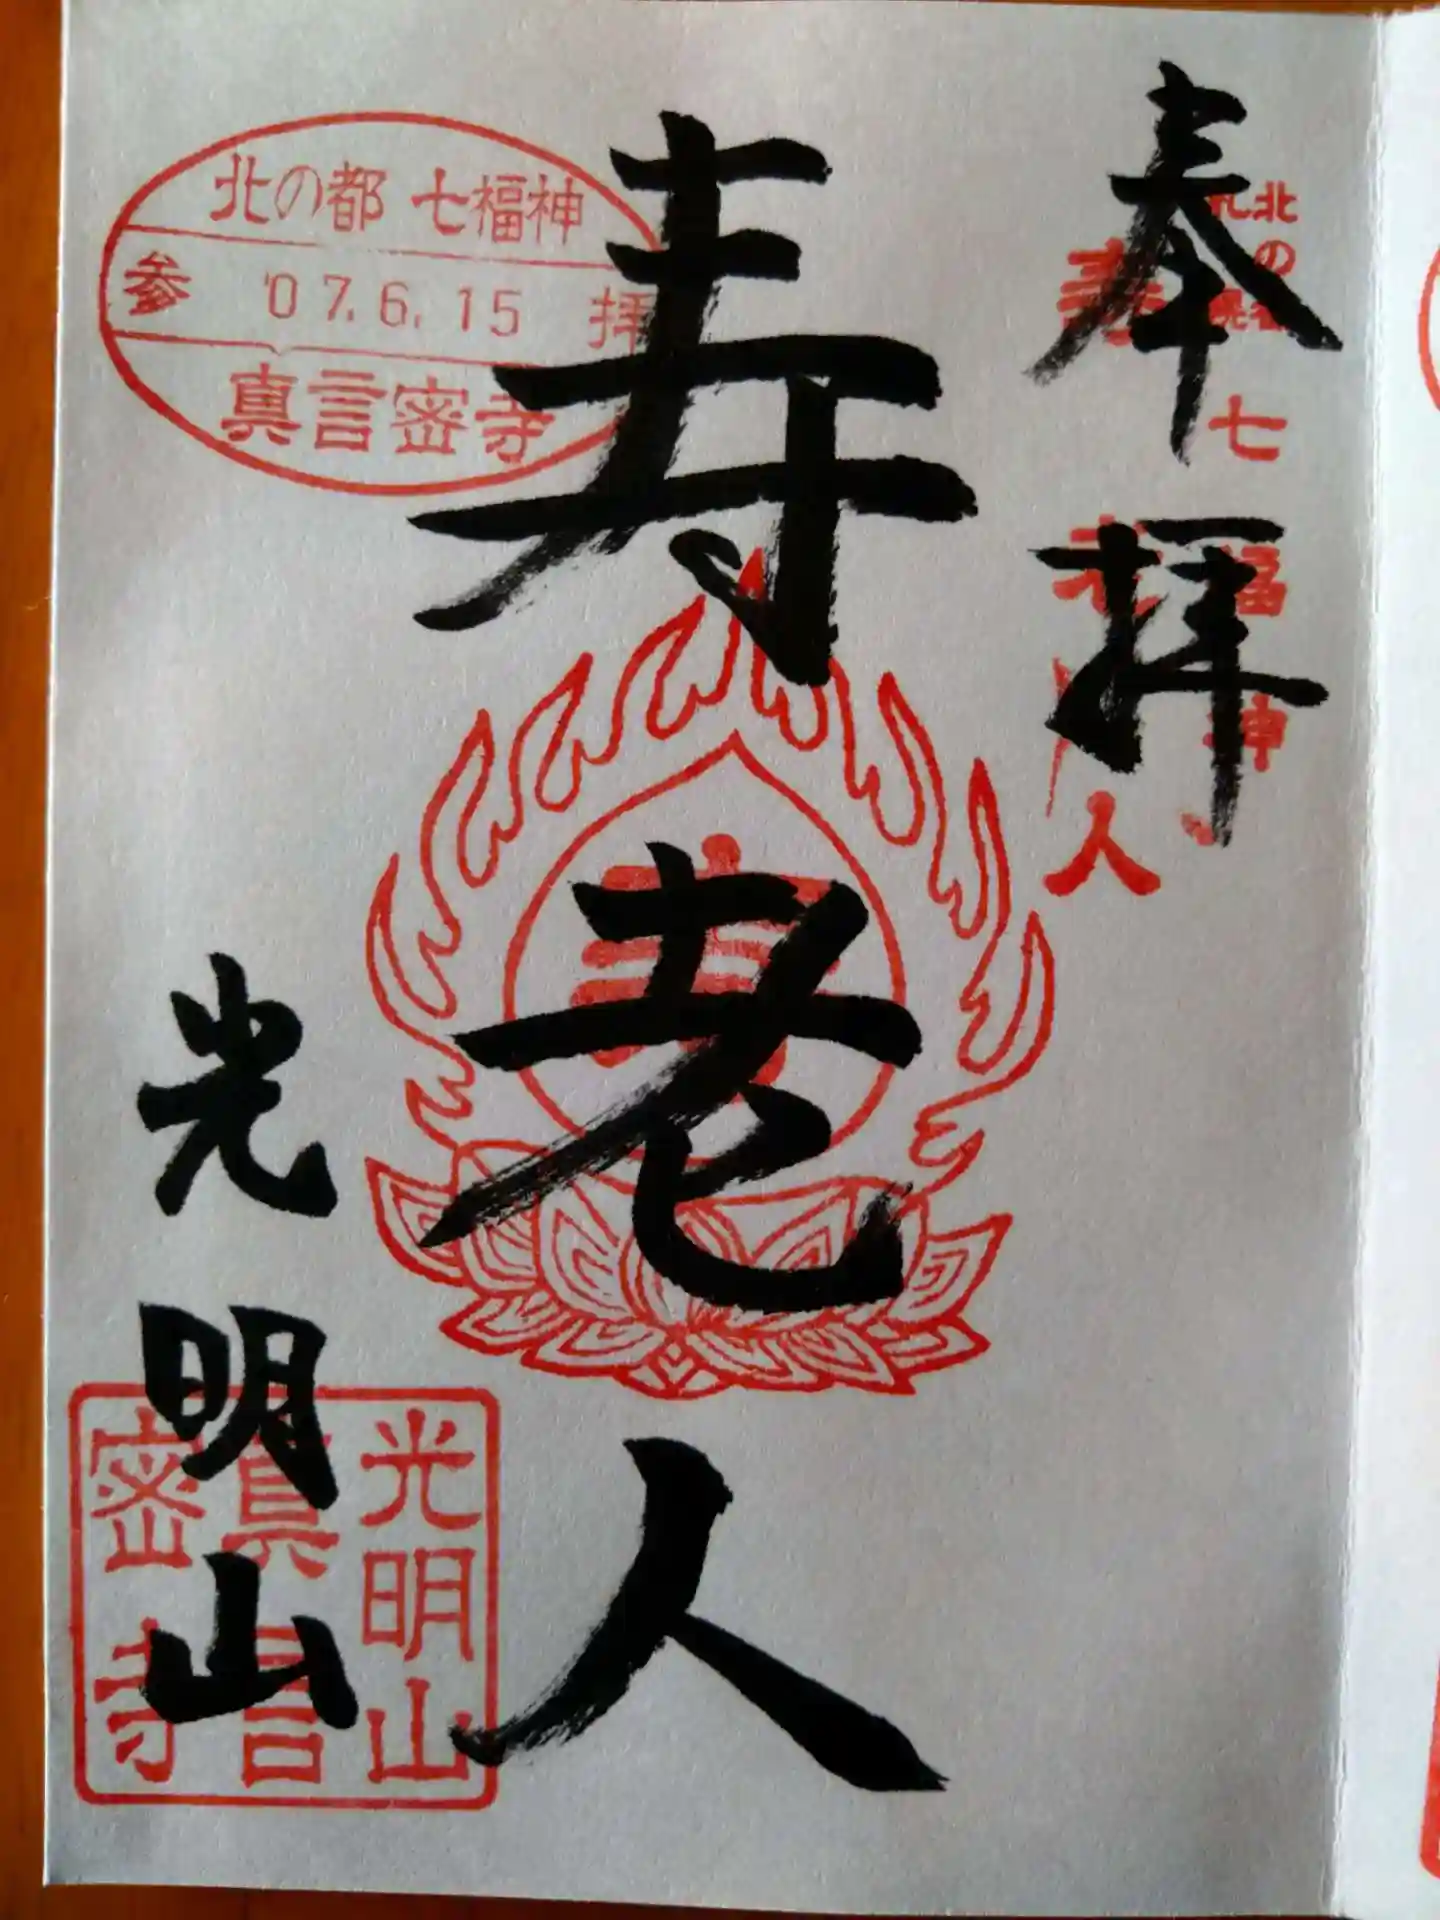 奉拝
北の都
札幌
七福神
寿老人
寿老人
光明山
北の都 七福神
参 '07.6.15 拝
真言密寺
寿
光明山
真言
密寺